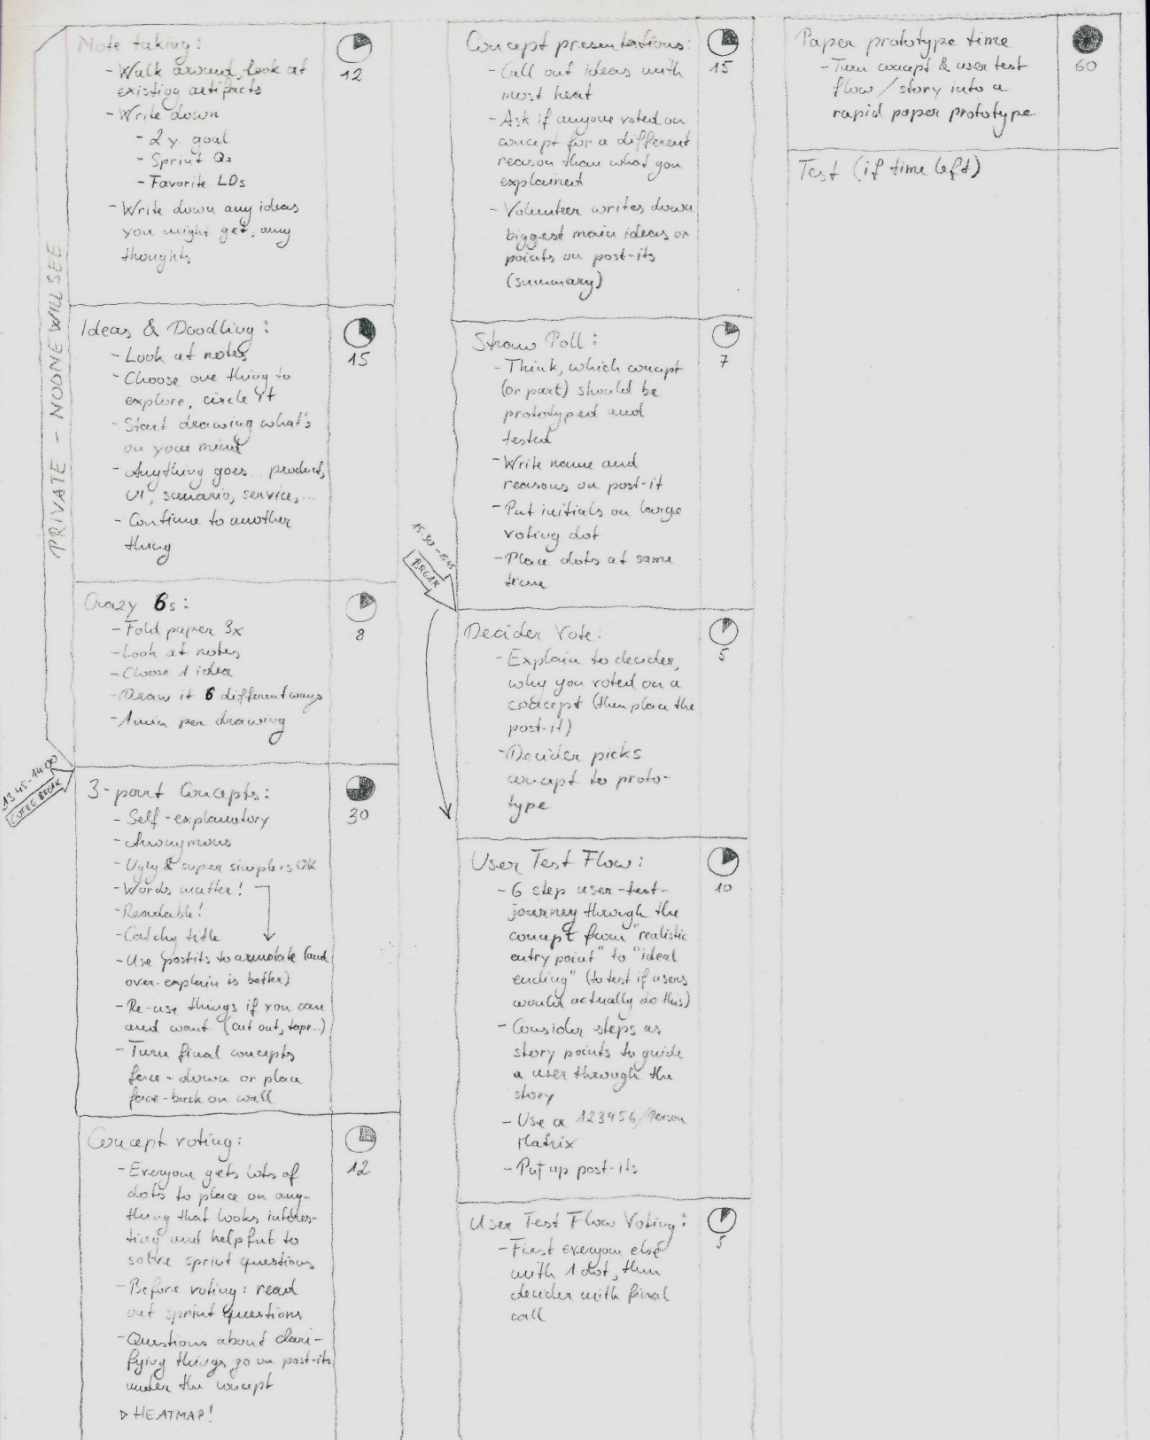 PRIVATE - NOONE WILL SEE
Note taking:
12
- Walk around, look at
existing artifacts
- Write down
- 2y goal
- Sprint Qs
- Favorite LDs
- Write down any ideas
you might get, any
thoughts
Ideas & Doodling:
15
- Look at notes
- Choose one thing to
explore, circle it
- Start drawing what's
on your mind
- Anything goes... product,
UI, scenario, service,...
- Continue to another
thing
Crazy 6s:
8
- Fold paper 3x
- Look at notes
- Choose 1 idea
- Draw it 6 different ways
- 1 min per drawing
13:45-14:00
COFFEE BREAK
3-part Concepts:
30
- Self-explanatory
- Anonymous
- Ugly & super simple is OK
- Words matter!
- Readable!
- Catchy title
- Use postits to annotate (and
over-explain is better)
- Re-use things if you can
and want (cut out, tape...)
- Turn final concepts
face-down or place
face-back on wall
Concept voting:
12
- Everyone gets lots of
dots to place on any-
thing that looks interes-
ting and helpful to
solve sprint questions
- Before voting: read
out sprint questions
- Questions about clari-
fying things go on post-its
under the concept
▷ HEATMAP!
Concept presentations:
15
- Call out ideas with
most heat
- Ask if anyone voted on
concept for a different
reason than what you
explained
- Volunteer writes down
biggest main ideas or
points on post-its
(summary)
Straw Poll:
7
- Think, which concept
(or part) should be
prototyped and
tested
- Write name and
reasons on post-it
- Put initials on large
voting dot
- Place dots at same
time
BREAK
Decider Vote:
5
- Explain to decider,
why you voted on a
concept (then place the
post-it)
- Decider picks
concept to proto-
type
User Test Flow:
10
- 6 step user-test-
journey through the
concept from "realistic
entry point" to "ideal
ending" (to test if users
would actually do this)
- Consider steps as
story points to guide
a user through the
story
- Use a 123456/Person
Matrix
- Put up post-its
User Test Flow Voting:
5
- First everyone else
with 1 dot, then
decider with final
call
Paper prototype time
60
- Turn concept & user test
flow/story into a
rapid paper prototype
Test (if time left)